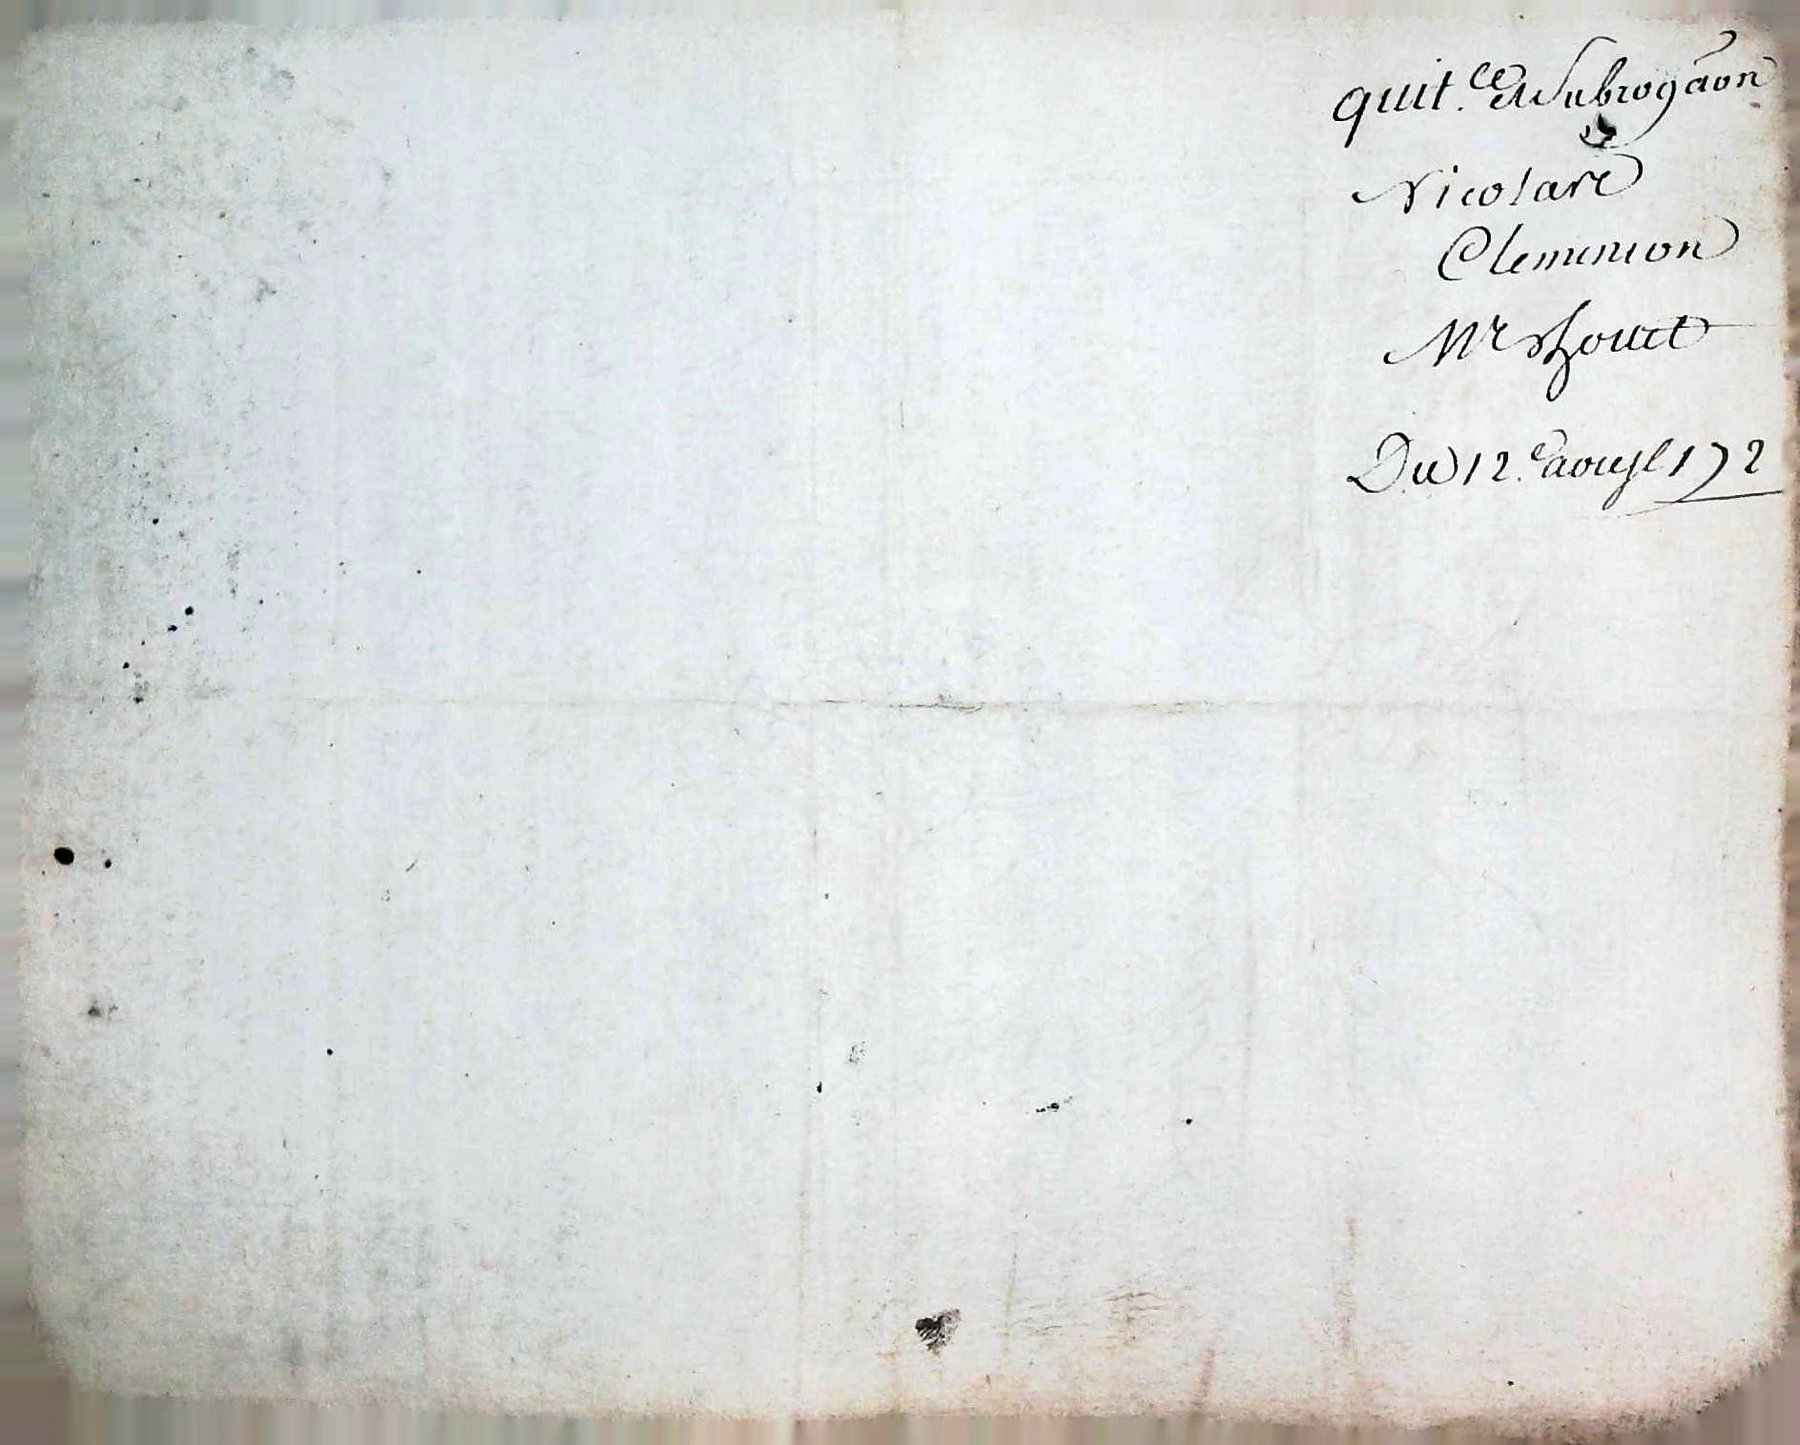 quit.ce et subrogaon
Nicolase
Cleminion
Mr Houet
Du 12.e aoust 172